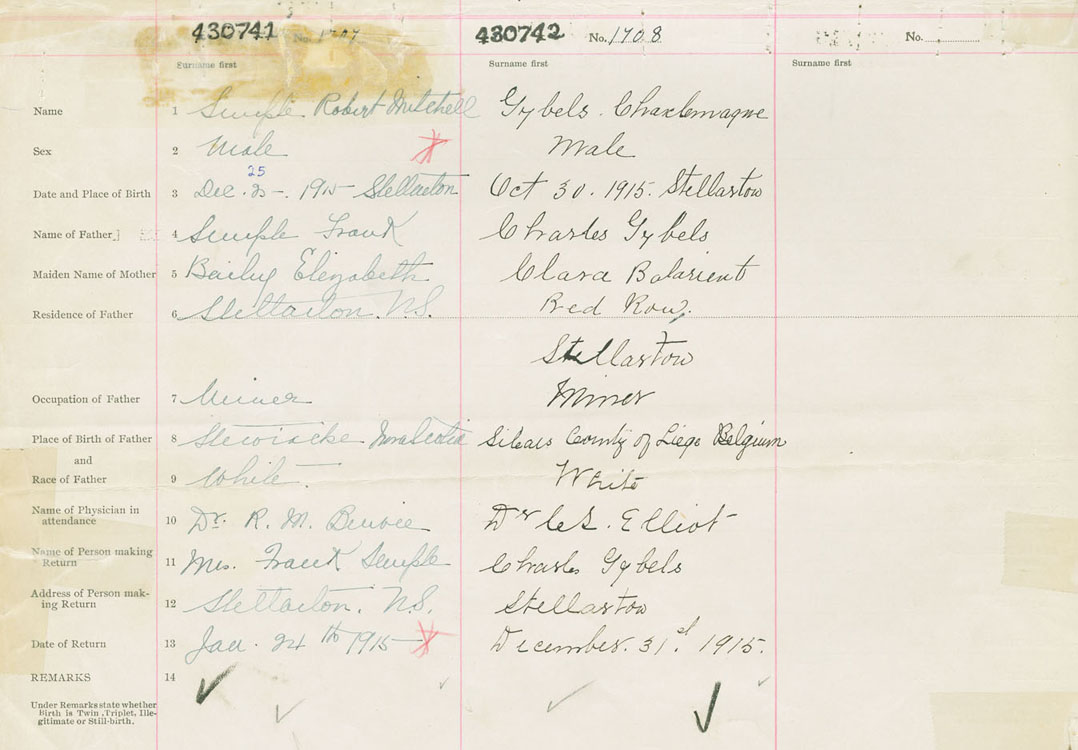 430741 No. 1707 430742 No. 1708 No.
Surname first Surname first Surname first
Name 1 Semple Robert Mitchell Gybels. Charlemagne
Sex 2 Male Male
25
Date and Place of Birth 3 Dec. 25-. 1915 Stellarton Oct 30. 1915. Stellarton
Name of Father 4 Semple Frank Charles Gybels
Maiden Name of Mother 5 Bailey Elizabeth Clara
Residence of Father 6 Stellarton. N.S. Red Row.
Stellarton
Occupation of Father 7 Miner Miner
Place of Birth of Father 8 Stewiacke Nova Scotia County of Liege Belgium
and
Race of Father 9 White. White
Name of Physician in
attendance 10 Dr. R. M. Benvie Dr Elliot
Name of Person making
Return 11 Mrs. Frank Semple Charles Gybels
Address of Person mak-
ing Return 12 Stellarton. N.S. Stellarton
Date of Return 13 Jan. 24th 1915 December. 31st. 1915.
REMARKS 14
Under Remarks state whether
Birth is Twin, Triplet, Ille-
gitimate or Still-birth.